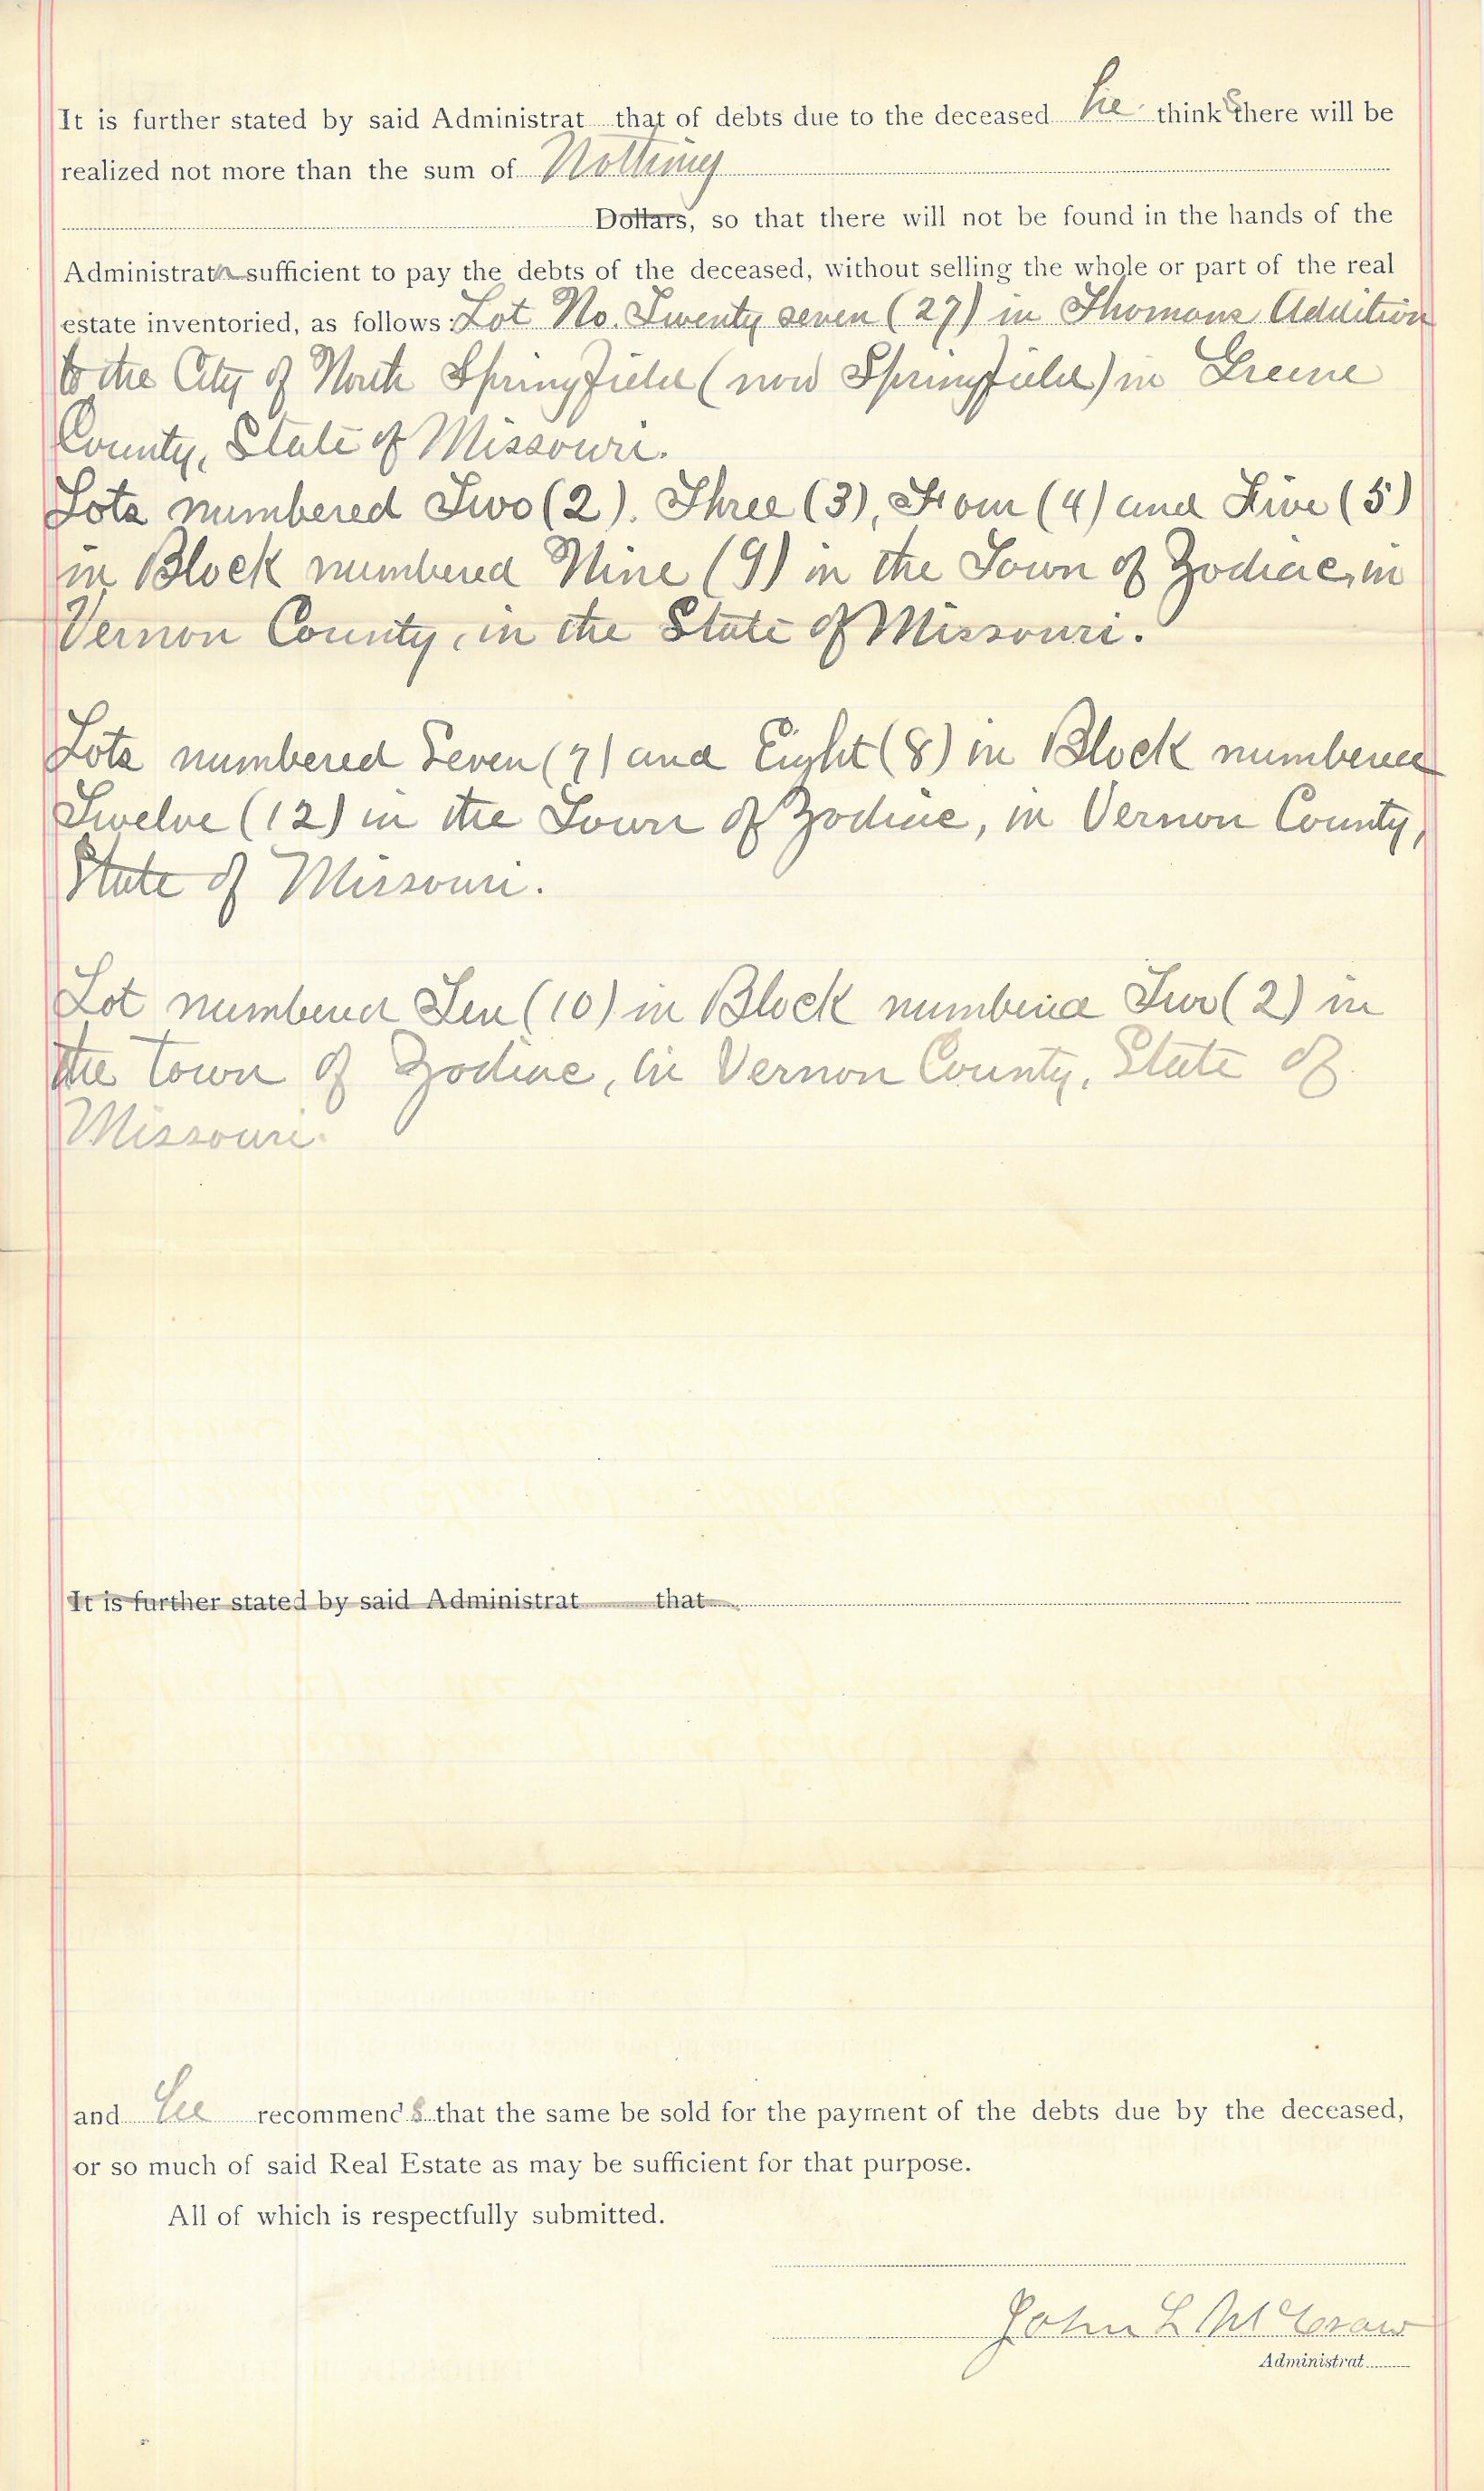 It is further stated by said Administrat that of debts due to the deceased he thinks there will be
realized not more than the sum of Nothing
Dollars, so that there will not be found in the hands of the
Administrator sufficient to pay the debts of the deceased, without selling the whole or part of the real
estate inventoried, as follows: Lot No. Twenty seven (27) in Thomans Addition
to the City of North Springfield (now Springfield) in Greene
County, State of Missouri.
Lots numbered Two (2). Three (3), Four (4) and Five (5)
in Block numbered Nine (9) in the Town of Zodiac, in
Vernon County, in the State of Missouri.
Lots numbered Seven (7) and Eight (8) in Block numbered
Twelve (12) in the Town of Zodiac, in Vernon County,
State of Missouri.
Lot numbered Ten (10) in Block numbered Two (2) in
the town of Zodiac, in Vernon County, State of
Missouri.
It is further stated by said Administrat that
and he recommends that the same be sold for the payment of the debts due by the deceased,
or so much of said Real Estate as may be sufficient for that purpose.
All of which is respectfully submitted.
John L McCraw
Administrat